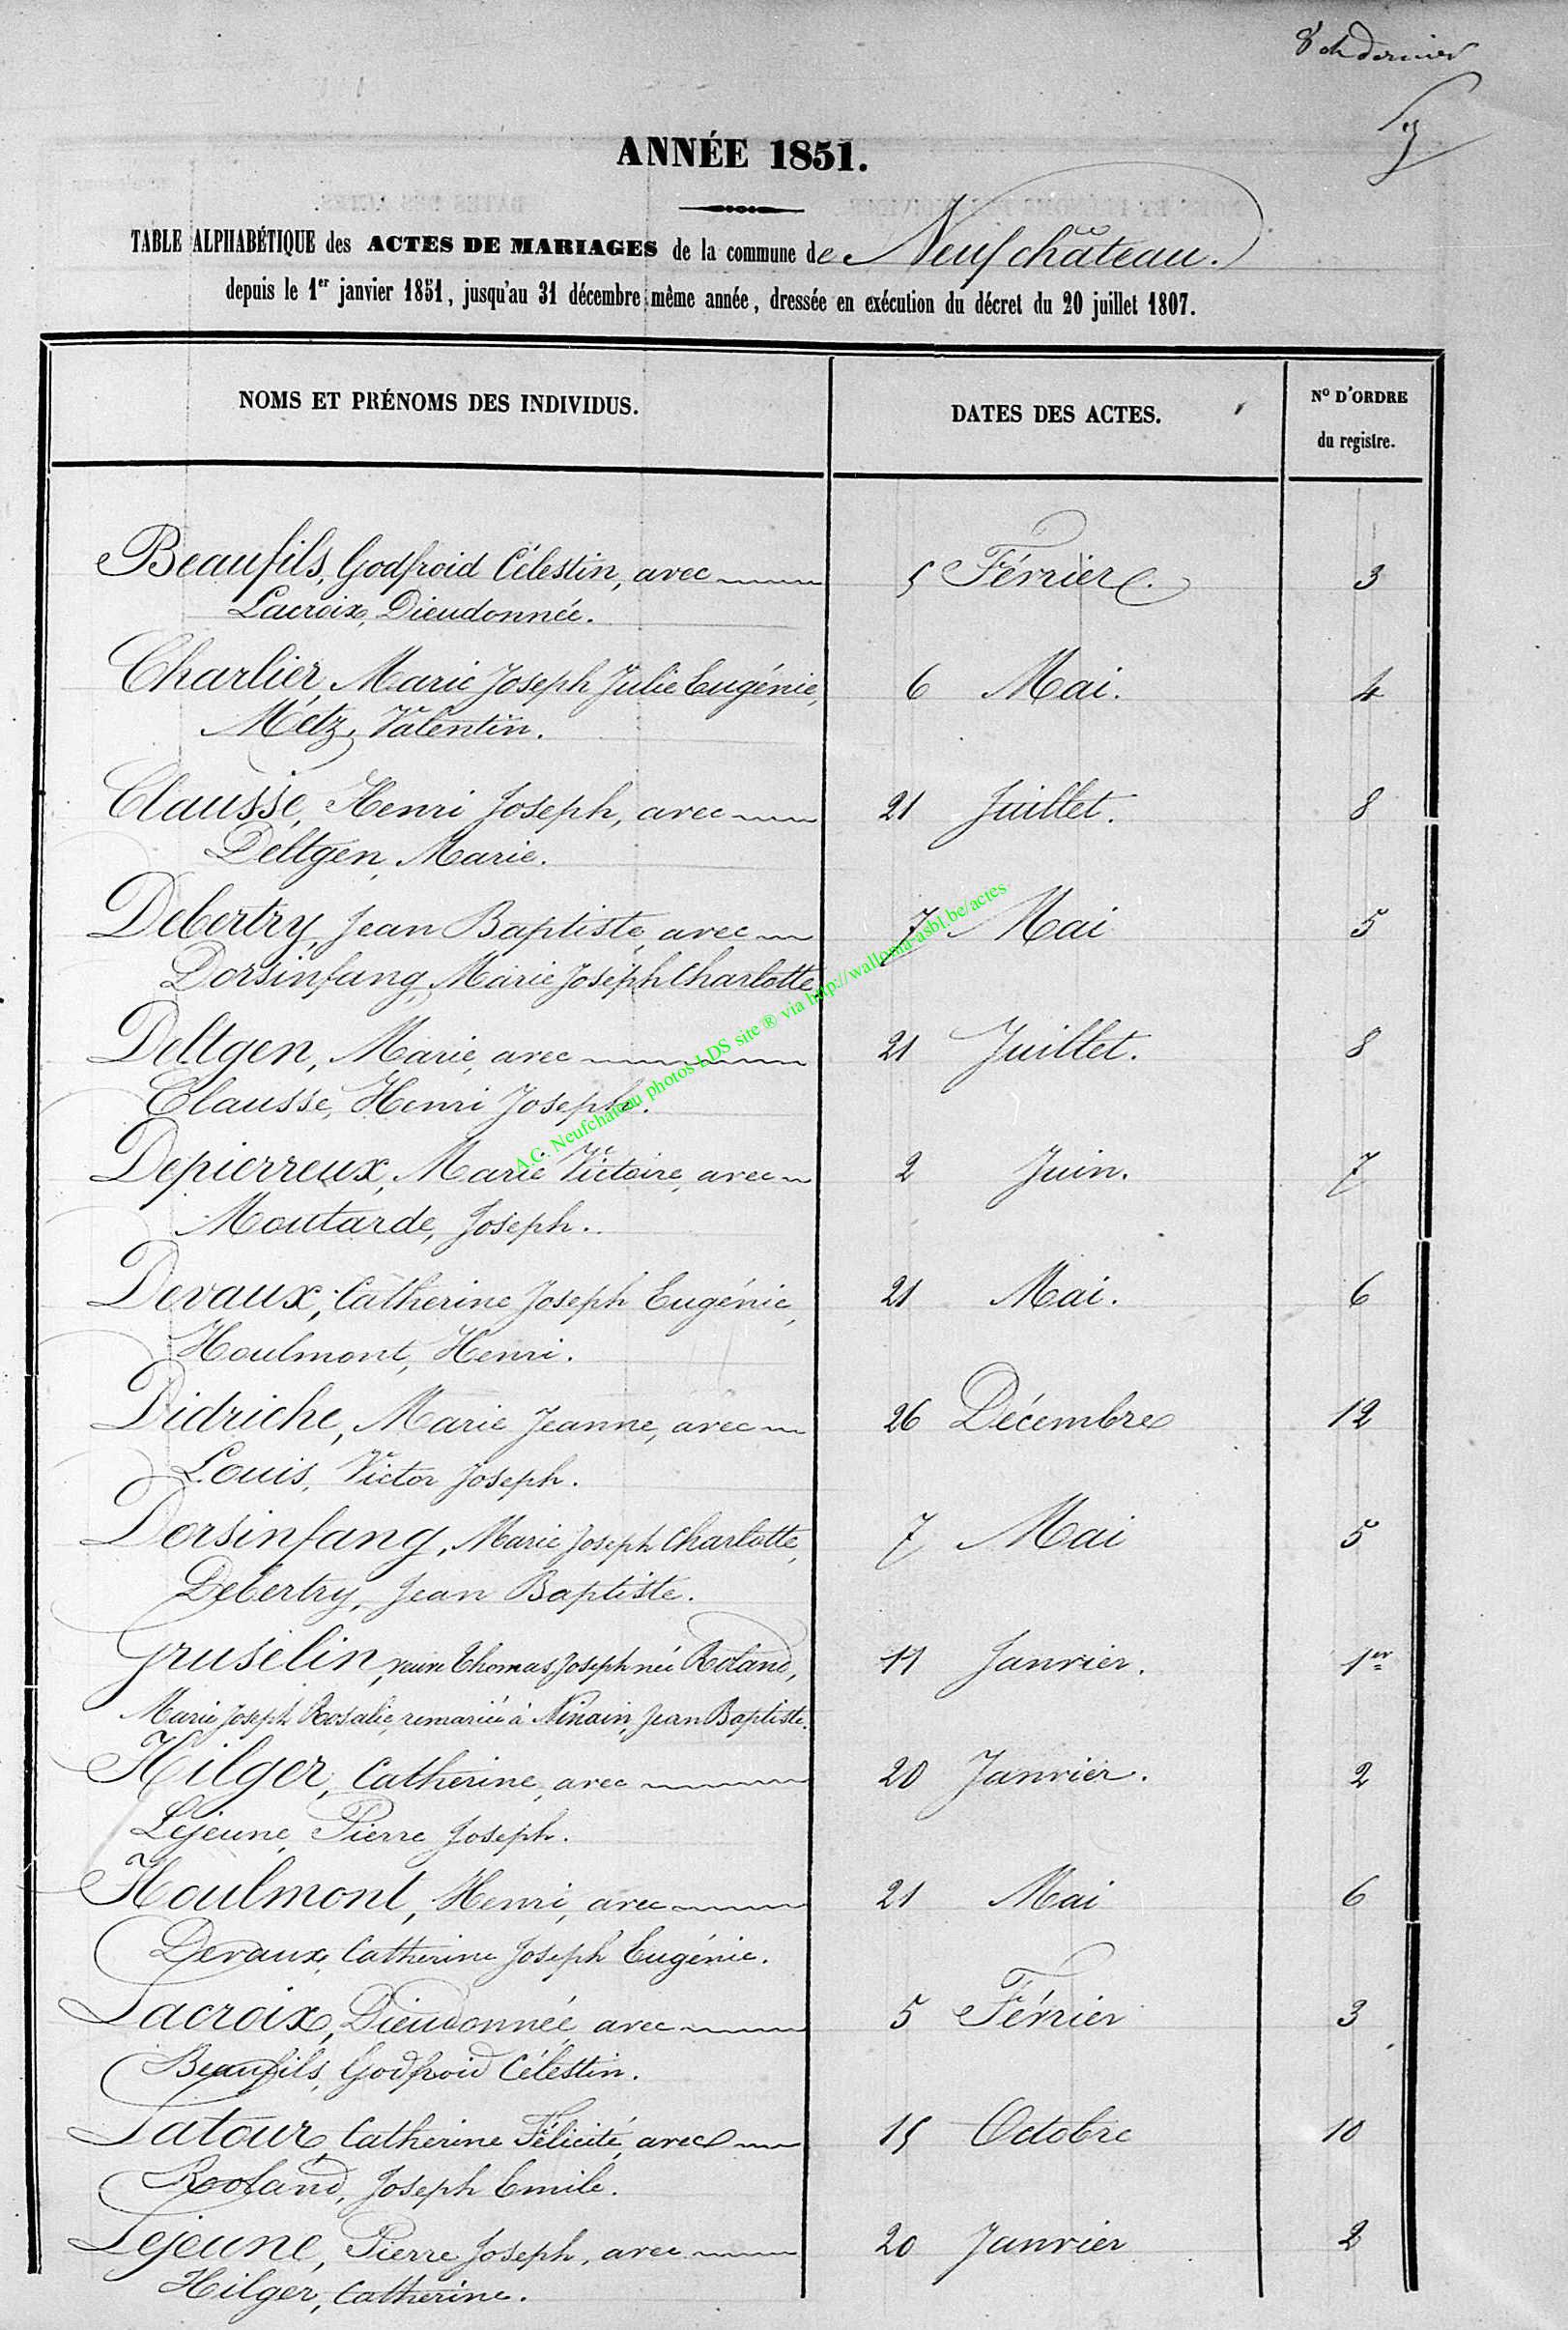 8e et dernier
ANNÉE 1851.
TABLE ALPHABÉTIQUE des ACTES DE MARIAGES de la commune de Neufchâteau.
depuis le 1er janvier 1851, jusqu'au 31 décembre même année, dressée en exécution du décret du 20 juillet 1807.
NOMS ET PRÉNOMS DES INDIVIDUS. DATES DES ACTES. No D'ORDRE
du registre.
Beaufils, Godfroid Célestin, avec 5 Février. 3
Lacroix, Dieudonnée.
Charlier, Marie Joseph Julie Eugénie, 6 Mai. 4
Metz, Valentin.
Clausse, Henri Joseph, avec 21 Juillet. 8
Deltgen, Marie.
Debertry, Jean Baptiste, avec 7 Mai 5
Dorsinfang, Marie Joseph Charlotte
Deltgen, Marie, avec 21 Juillet. 8
Clausse, Henri Joseph.
Depierreux, Marie Victoire, avec 2 Juin. 7
Moutarde, Joseph.
Devaux, Catherine Joseph Eugénie, 21 Mai. 6
Houlmont, Henri.
Didriche, Marie Jeanne, avec 26 Décembre 12
Louis, Victor Joseph.
Dorsinfang, Marie Joseph Charlotte, 7 Mai 5
Debertry, Jean Baptiste.
Gruselin, Thomas Joseph née Roland, 11 Janvier. 1er
Marie Joseph Rosalie, remariée à Ninain, Jean Baptiste.
Hilger, Catherine, avec 20 Janvier. 2
Lejeune, Pierre Joseph.
Houlmont, Henri, avec 21 Mai 6
Devaux, Catherine Joseph Eugénie.
Lacroix, Dieudonnée, avec 5 Février 3
Beaufils, Godfroid Célestin.
Latour, Catherine Félicité, avec 15 Octobre 10
Roland, Joseph Emile.
Lejeune, Pierre Joseph, avec 20 Janvier 2
Hilger, Catherine.
A.C. Neufchâteau photos LDS site ® via http://wallonia-asbl.be/actes